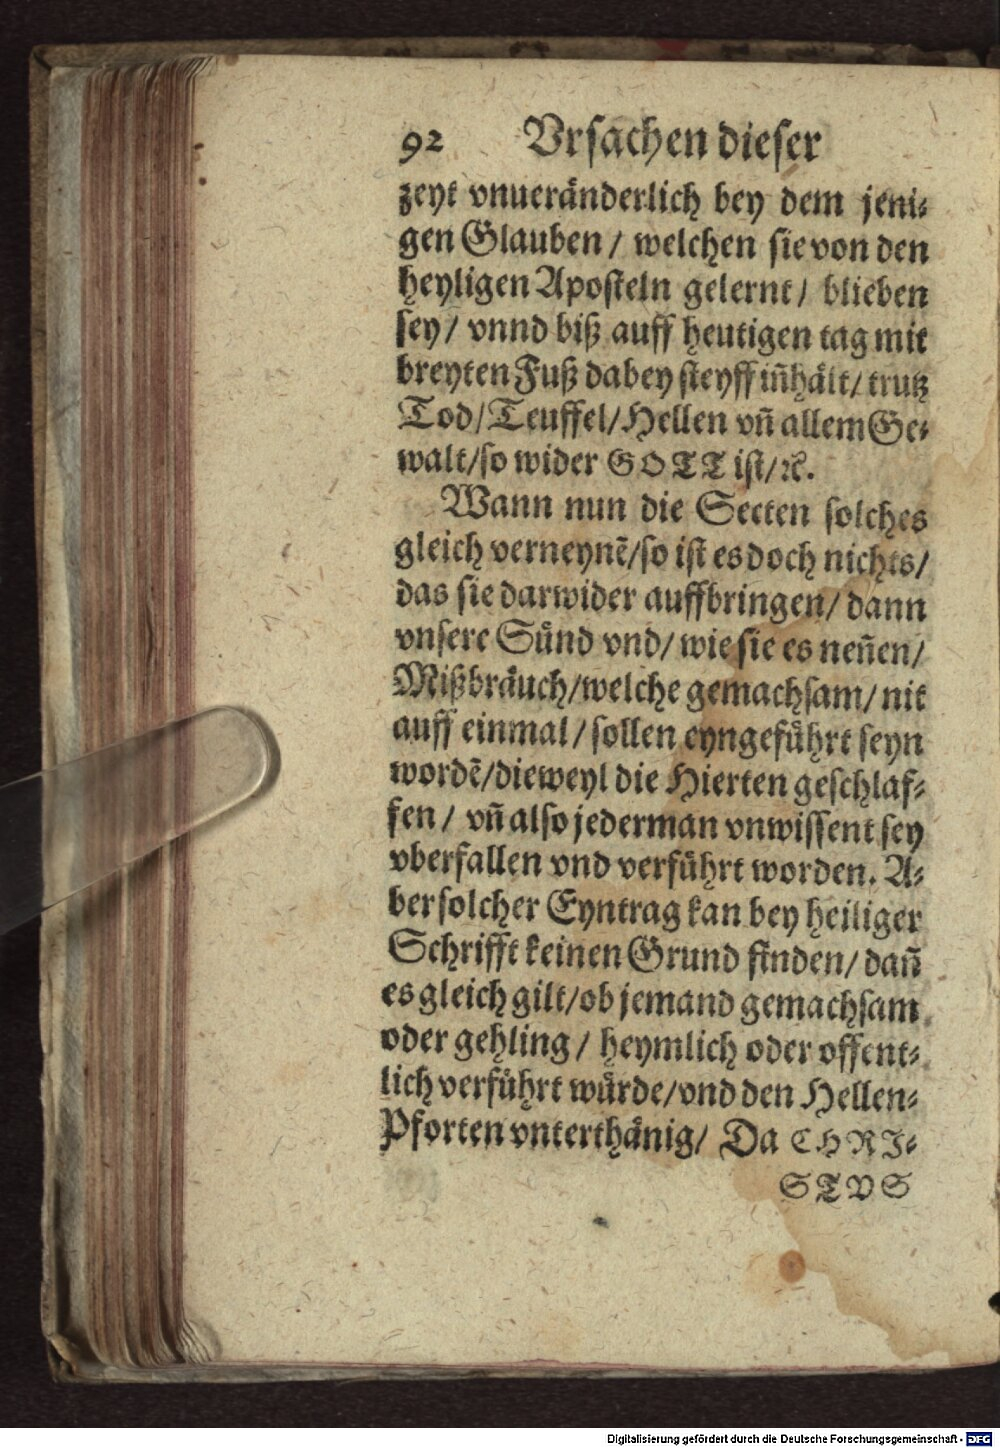 92 Vrſachen dieſer
zeyt vnueränderlich bey dem jeni-
gen Glauben / welchen ſie von den
heyligen Apoſteln gelernt / blieben
ſey / vnnd biß auff heutigen tag mit
breyten Fuß dabey ſteyff iñhält / trutz
Tod / Teuffel / Hellen vñ allem Ge-
walt / ſo wider GOTT iſt / ꝛc.
Wann nun die Secten ſolches
gleich verneynẽ / ſo iſt es doch nichts /
das ſie darwider auffbringen / dann
vnſere Sünd vnd / wie ſie es neñen /
Mißbräuch / welche gemachſam / nit
auff einmal / ſollen eyngeführt ſeyn
wordẽ / dieweyl die Hierten geſchlaf-
fen / vñ alſo jederman vnwiſſent ſey
vberfallen vnd verführt worden. A-
ber ſolcher Eyntrag kan bey heiliger
Schrifft keinen Grund finden / dañ
es gleich gilt / ob jemand gemachſam
oder gehling / heymlich oder offent-
lich verführt würde / vnd den Hellen-
Pforten vnterthänig / Da CHRI-
STVS
Digitalisierung gefördert durch die Deutsche Forschungsgemeinschaft - DFG